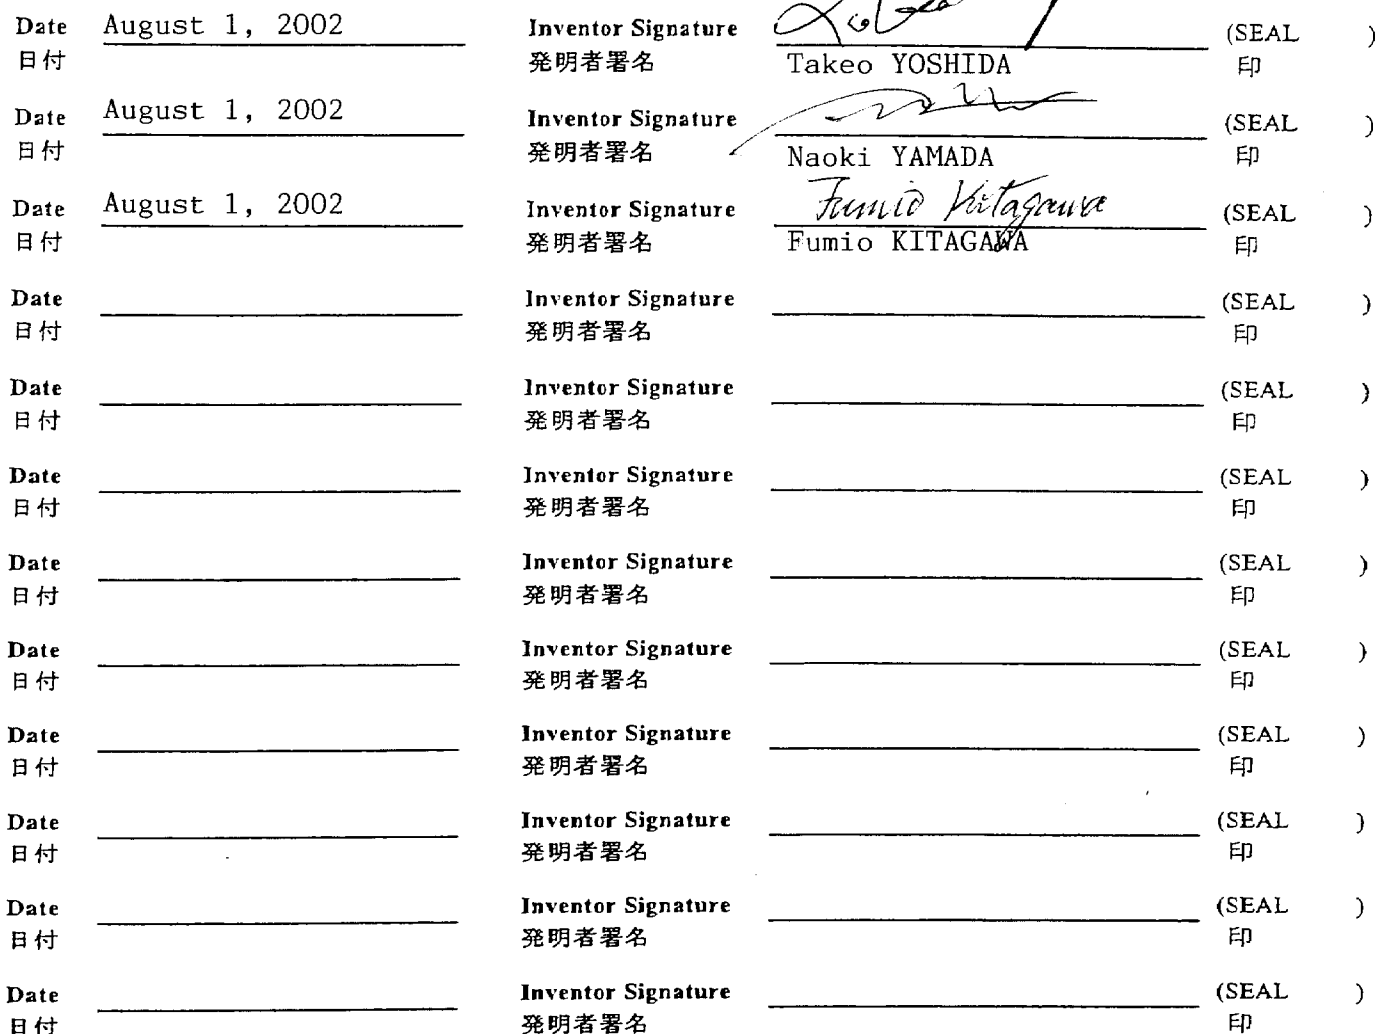 Date August 1, 2002 Inventor Signature (SEAL )
日付 発明者署名 Takeo YOSHIDA 印
Date August 1, 2002 Inventor Signature (SEAL )
日付 発明者署名 Naoki YAMADA 印
Date August 1, 2002 Inventor Signature Fumio Kitagawa (SEAL )
日付 発明者署名 Fumio KITAGAWA 印
Date Inventor Signature (SEAL )
日付 発明者署名 印
Date Inventor Signature (SEAL )
日付 発明者署名 印
Date Inventor Signature (SEAL )
日付 発明者署名 印
Date Inventor Signature (SEAL )
日付 発明者署名 印
Date Inventor Signature (SEAL )
日付 発明者署名 印
Date Inventor Signature (SEAL )
日付 発明者署名 印
Date Inventor Signature (SEAL )
日付 発明者署名 印
Date Inventor Signature (SEAL )
日付 発明者署名 印
Date Inventor Signature (SEAL )
日付 発明者署名 印